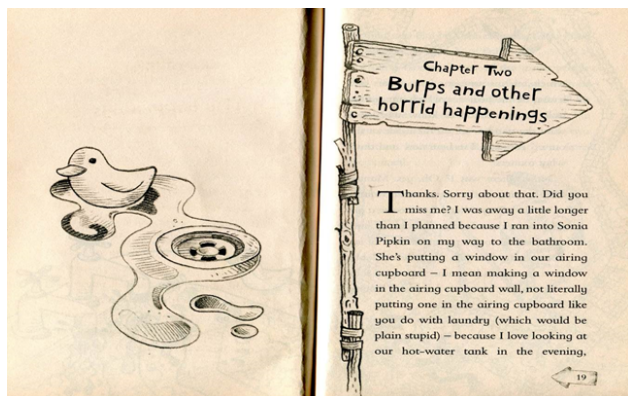 Chapter Two
Burps and other
horrid happenings
Thanks. Sorry about that. Did you
miss me? I was away a little longer
than I planned because I ran into Sonia
Pipkin on my way to the bathroom.
She's putting a window in our airing
cupboard – I mean making a window
in the airing cupboard wall, not literally
putting one in the airing cupboard like
you do with laundry (which would be
plain stupid) – because I love looking at
our hot-water tank in the evening,
19